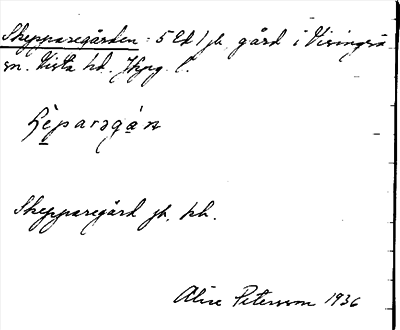 Skepparegården: 5 Ed 1 jb, gård i Visingsö
sn. Vista hd. Jkpg l.
Skepparegård jb. hh.
Alice Petersson 1936